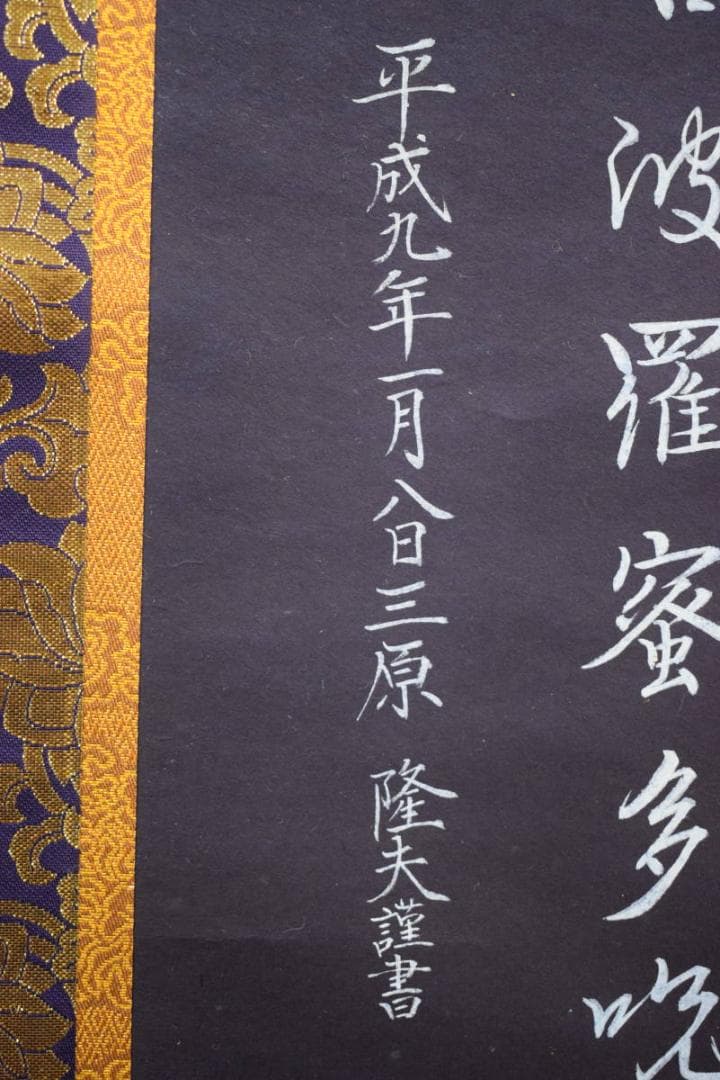 波羅蜜多呪
平成九年一月八日三原 隆夫謹書